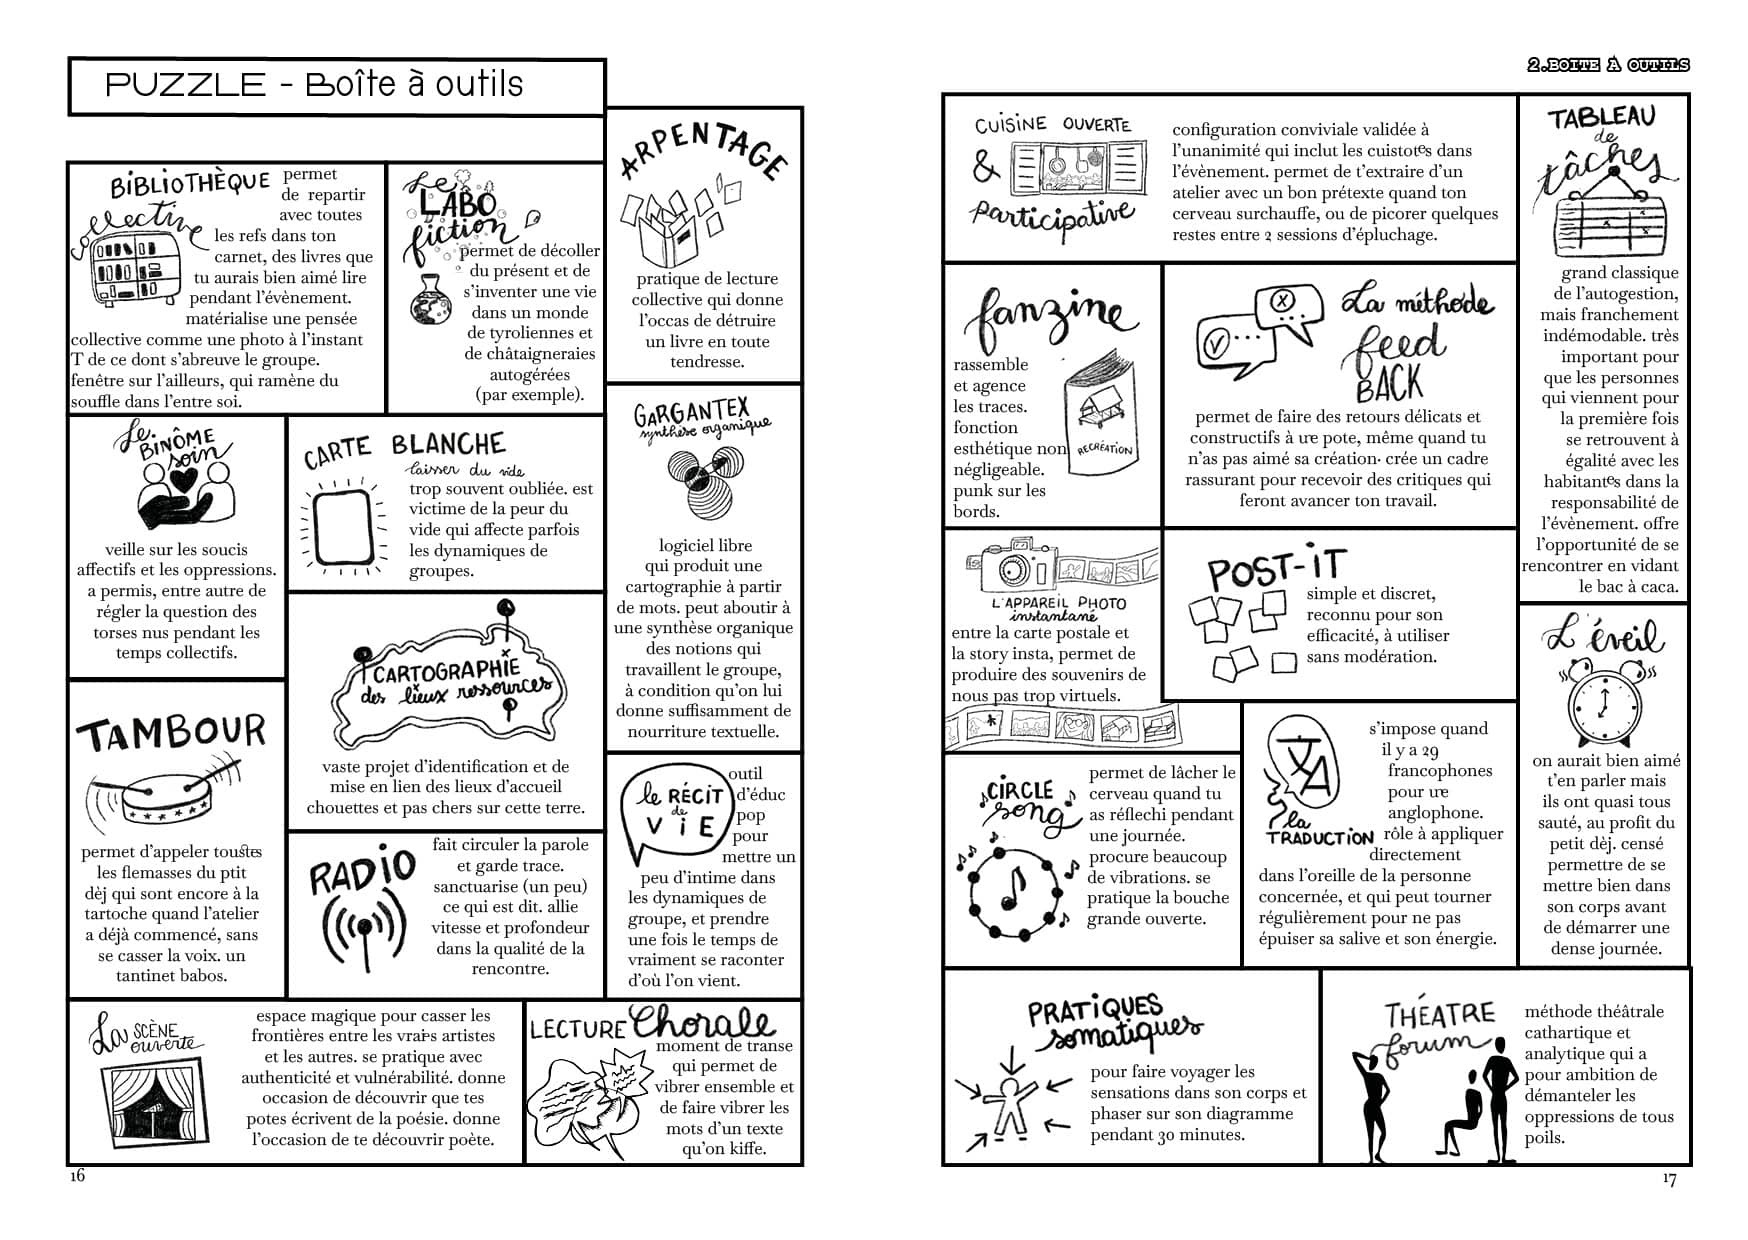 PUZZLE - Boîte à outils
BiBLiOTHÈQUE
collective
permet
de repartir
avec toutes
les refs dans ton
carnet, des livres que
tu aurais bien aimé lire
pendant l'évènement.
matérialise une pensée
collective comme une photo à l'instant
T de ce dont s'abreuve le groupe.
fenêtre sur l'ailleurs, qui ramène du
souffle dans l'entre soi.
Le
LABO
fiction
permet de décoller
du présent et de
s'inventer une vie
dans un monde
de tyroliennes et
de châtaigneraies
autogérées
(par exemple).
ARPENTAGE
pratique de lecture
collective qui donne
l'occas de détruire
un livre en toute
tendresse.
Le
BINÔME
soin
veille sur les soucis
affectifs et les oppressions.
a permis, entre autre de
régler la question des
torses nus pendant les
temps collectifs.
CARTE BLANCHE
laisser du vide
trop souvent oubliée. est
victime de la peur du
vide qui affecte parfois
les dynamiques de
groupes.
GARGANTEX
synthèse organique
logiciel libre
qui produit une
cartographie à partir
de mots. peut aboutir à
une synthèse organique
des notions qui
travaillent le groupe,
à condition qu'on lui
donne suffisamment de
nourriture textuelle.
CARTOGRAPHiE
des lieux ressources
vaste projet d'identification et de
mise en lien des lieux d'accueil
chouettes et pas chers sur cette terre.
TAMBOUR
permet d'appeler toustes
les flemasses du ptit
dèj qui sont encore à la
tartoche quand l'atelier
a déjà commencé, sans
se casser la voix. un
tantinet babos.
RADiO
fait circuler la parole
et garde trace.
sanctuarise (un peu)
ce qui est dit. allie
vitesse et profondeur
dans la qualité de la
rencontre.
le RÉCiT
de
ViE
outil
d'éduc
pop
pour
mettre un
peu d'intime dans
les dynamiques de
groupe, et prendre
une fois le temps de
vraiment se raconter
d'où l'on vient.
La SCÈNE
ouverte
espace magique pour casser les
frontières entre les vrais artistes
et les autres. se pratique avec
authenticité et vulnérabilité. donne
occasion de découvrir que tes
potes écrivent de la poésie. donne
l'occasion de te découvrir poète.
LECTURE Chorale
moment de transe
qui permet de
vibrer ensemble et
de faire vibrer les
mots d'un texte
qu'on kiffe.
16
2.BOITE A OUTILS
CUiSiNE OUVERTE
&
participative
configuration conviviale validée à
l'unanimité qui inclut les cuistotes dans
l'évènement. permet de t'extraire d'un
atelier avec un bon prétexte quand ton
cerveau surchauffe, ou de picorer quelques
restes entre 2 sessions d'épluchage.
TABLEAU
de
tâches
grand classique
de l'autogestion,
mais franchement
indémodable. très
important pour
que les personnes
qui viennent pour
la première fois
se retrouvent à
égalité avec les
habitantes dans la
responsabilité de
l'évènement. offre
l'opportunité de se
rencontrer en vidant
le bac à caca.
fanzine
rassemble
et agence
les traces.
fonction
esthétique non
négligeable.
punk sur les
bords.
RECRÉATION
La méthode
feed
BACK
permet de faire des retours délicats et
constructifs à une pote, même quand tu
n'as pas aimé sa création· crée un cadre
rassurant pour recevoir des critiques qui
feront avancer ton travail.
L'APPAREiL PHOTO
instantané
entre la carte postale et
la story insta, permet de
produire des souvenirs de
nous pas trop virtuels.
POST-iT
simple et discret,
reconnu pour son
efficacité, à utiliser
sans modération.
L'éveil
on aurait bien aimé
t'en parler mais
ils ont quasi tous
sauté, au profit du
petit dèj. censé
permettre de se
mettre bien dans
son corps avant
de démarrer une
dense journée.
CiRCLE
song
permet de lâcher le
cerveau quand tu
as réflechi pendant
une journée.
procure beaucoup
de vibrations. se
pratique la bouche
grande ouverte.
文A
la
TRADUCTiON
s'impose quand
il y a 29
francophones
pour une
anglophone.
rôle à appliquer
directement
dans l'oreille de la personne
concernée, et qui peut tourner
régulièrement pour ne pas
épuiser sa salive et son énergie.
PRATiQUES
somatiques
pour faire voyager les
sensations dans son corps et
phaser sur son diagramme
pendant 30 minutes.
THÉATRE
forum
méthode théâtrale
cathartique et
analytique qui a
pour ambition de
démanteler les
oppressions de tous
poils.
17